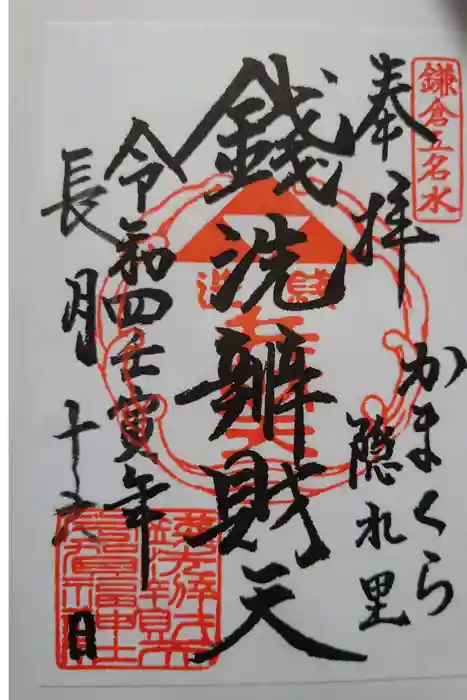 鎌倉五名水
奉拝
かまくら
隠れ里
銭洗辨財天
令和四壬寅年
長月十六日